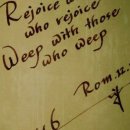 Rejoice
who rejoice
Weep with those
who weep
Rom. 12.
6